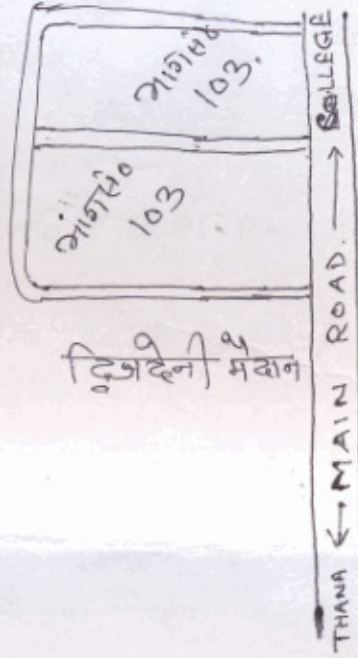 भाग सं०
103.
भाग सं०
103
द्विजदेनी मैदान
THANA ← MAIN ROAD. → COLLEGE